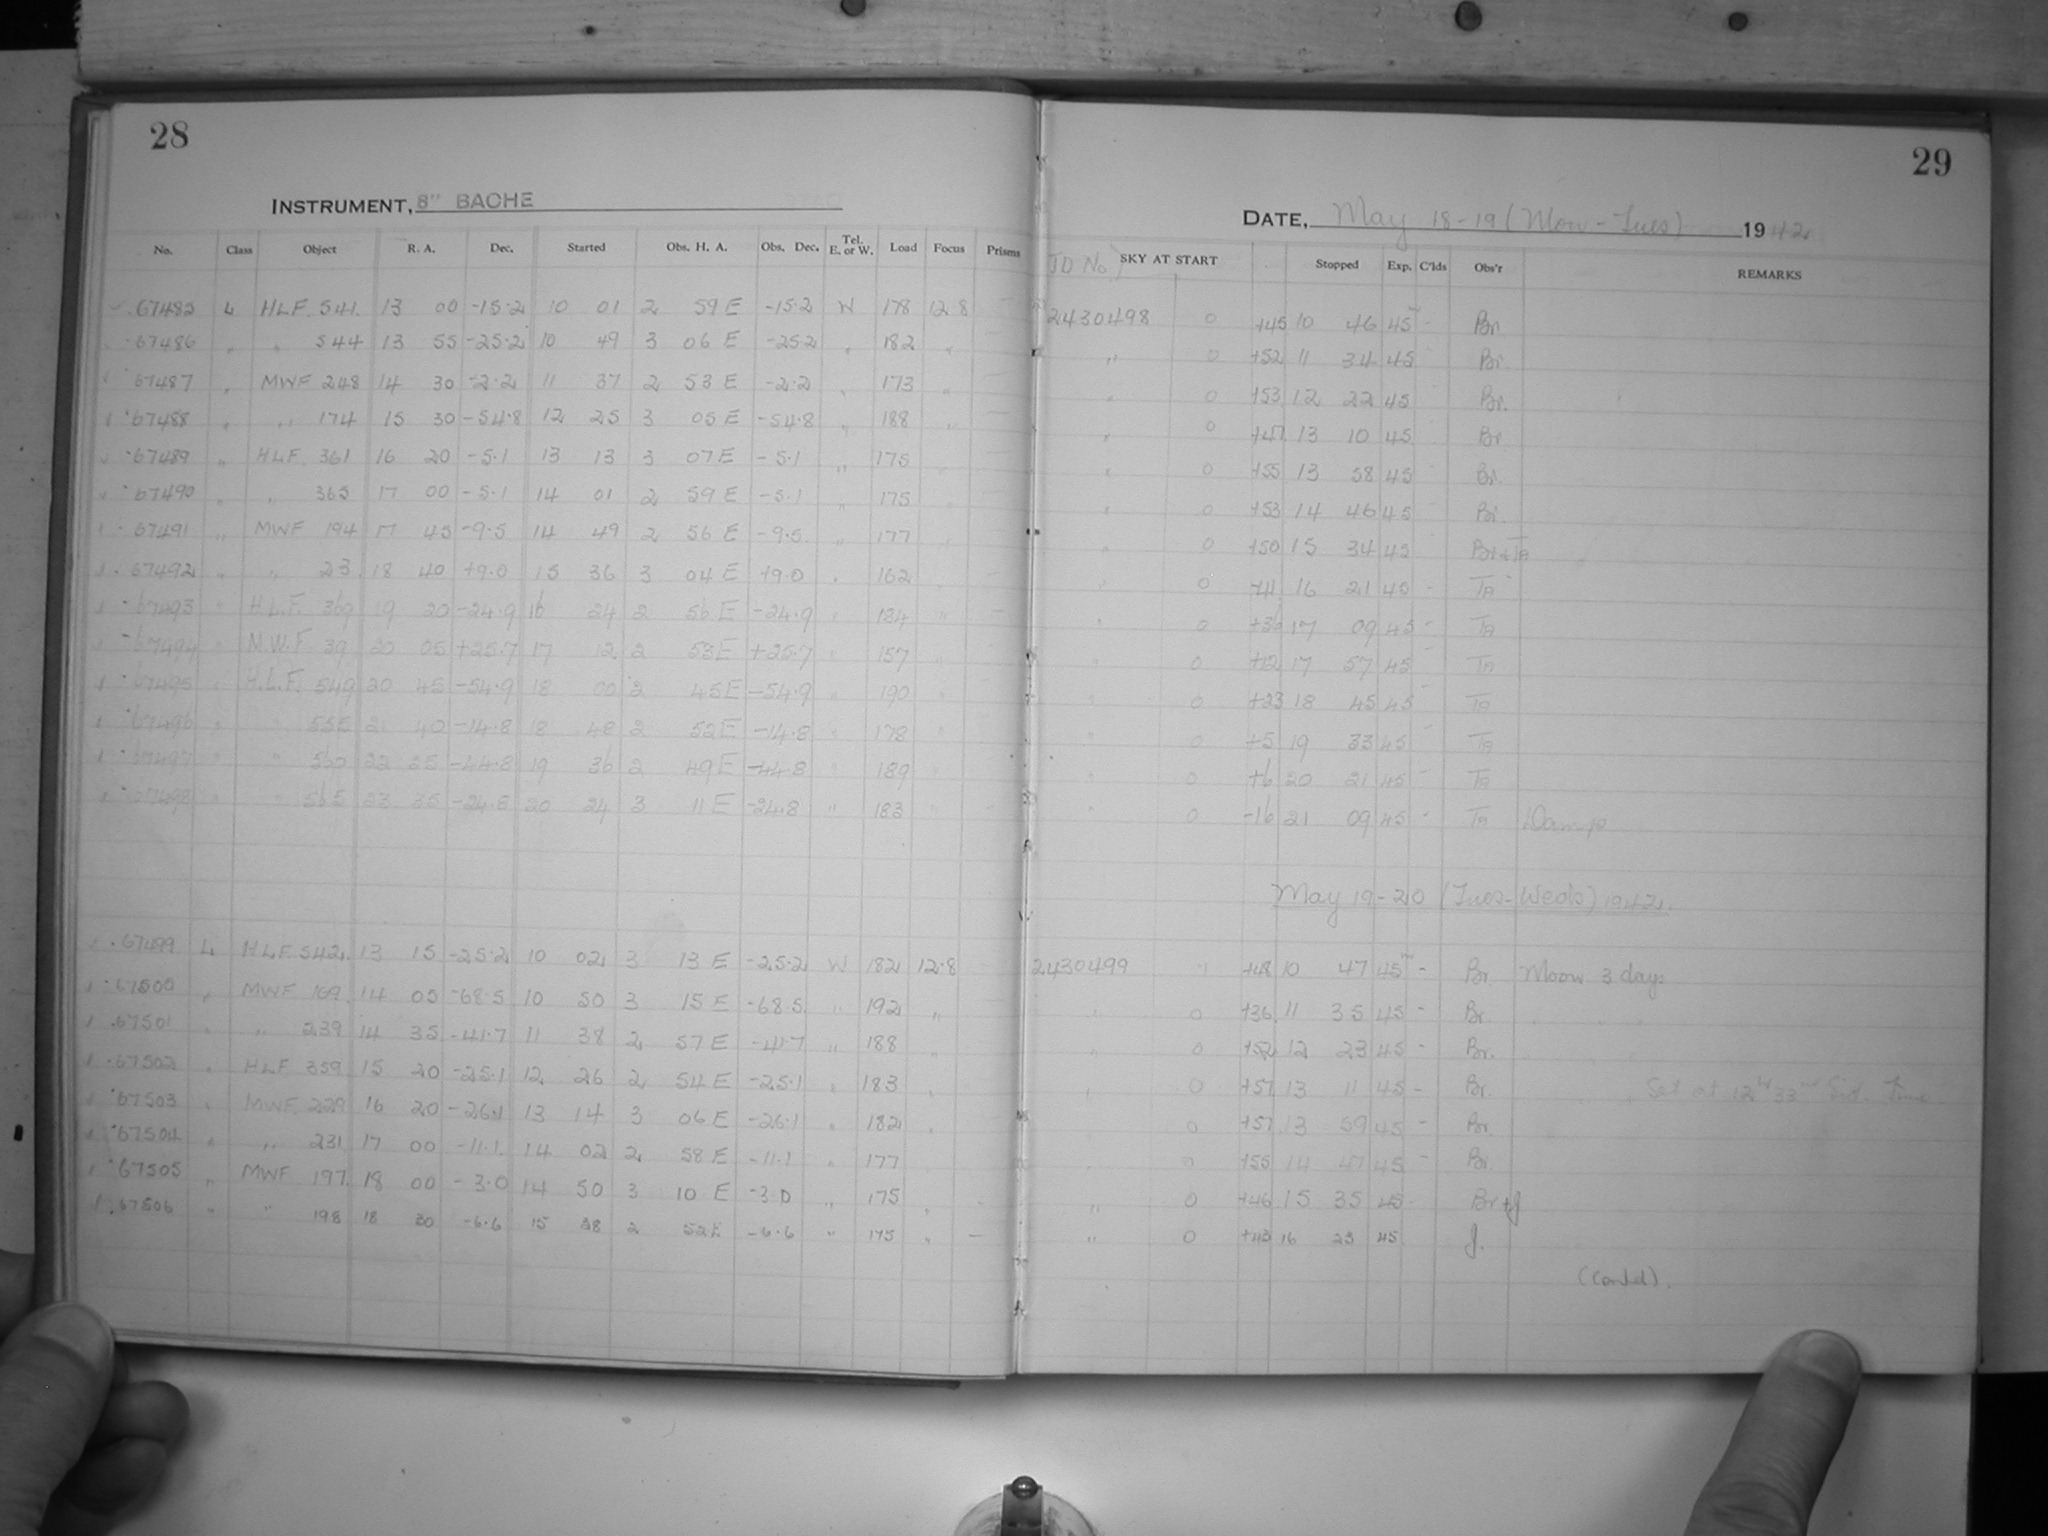 28
INSTRUMENT, 8" BACHE
No. Class Object R. A. Dec. Started Obs. H. A. Obs. Dec. Tel. E. or W. Load Focus Prisms
67485 L HLF 541 13 00 -15.2 10 01 2 59 E -15.2 W 178 12.8
67486 " " 544 13 55 -25.2 10 49 3 06 E -25.2 " 182 "
67487 " MWF 248 14 30 -2.2 11 37 2 53 E -2.2 " 173 "
67488 " " 174 15 30 -54.8 12 25 3 05 E -54.8 " 188 "
67489 " HLF 361 16 20 -5.1 13 13 3 07 E -5.1 " 175
67490 " " 365 17 00 -5.1 14 01 2 59 E -5.1 " 175
67491 " MWF 194 17 45 -9.5 14 49 2 56 E -9.5 " 177 "
67492 " " 23 18 40 +9.0 15 36 3 04 E +9.0 " 162 " -
67493 " H.L.F. 369 19 20 -24.9 16 24 2 56 E -24.9 " 184 " -
67494 " M.W.F 39 20 05 +25.7 17 12 2 53 E +25.7 " 157 "
67495 " H.L.F. 549 20 45 -54.9 18 00 2 45 E -54.9 " 190 "
67496 " " 21 40 -14.8 18 48 2 52 E -14.8 " 178 "
67497 " " 560 22 25 -44.8 19 36 2 49 E -44.8 " 189 "
67498 " " 565 23 35 -24.8 20 24 3 11 E -24.8 " 183 "
67499 L HLF 542 13 15 -25.2 10 02 3 13 E -25.2 W 182 12.8
67500 " MWF 169 14 05 -68.5 10 50 3 15 E -68.5 " 192 "
67501 " " 239 14 35 -41.7 11 38 2 57 E -41.7 " 188 "
67502 " HLF 359 15 20 -25.1 12 26 2 54 E -25.1 " 183 "
67503 " MWF 229 16 20 -26.1 13 14 3 06 E -26.1 " 182 "
67504 " " 231 17 00 -11.1 14 02 2 58 E -11.1 " 177 "
67505 " MWF 197 18 00 -3.0 14 50 3 10 E -3.0 " 175 " -
67506 " " 198 18 30 -6.6 15 38 2 52 E -6.6 " 175 " -
29
DATE, May 18-19 (Mon - Tues) 1942
JD No SKY AT START Stopped Exp. C'lds Obs'r REMARKS
2430498 0 +45 10 46 45m - Br
" 0 +52 11 34 45 Br.
" 0 +53 12 22 45 Br.
" 0 +47 13 10 45 Br
" 0 +55 13 58 45 Br.
" 0 +53 14 46 45 Br.
" 0 +50 15 34 45 Br + Ta
" 0 +41 16 21 45 - Ta
" 0 +36 17 09 45 - Ta
" 0 +12 17 57 45 Ta
" 0 +23 18 45 45 Ta
" 0 +5 19 33 45 Ta
" 0 +6 20 21 45 - Ta
" 0 -16 21 09 45 - Ta Damp
May 19-20 (Tues - Weds) 1942.
2430499 1 +48 10 47 45m - Br Moon 3 days
" 0 +36 11 35 45 - Br.
" 0 +52 12 23 45 - Br.
" 0 +57 13 11 45 - Br. Set at 12h 33m Sid. Time
0 +57 13 59 45 - Br.
0 +55 14 47 45 - Br.
" 0 +46 15 35 45 Br + J
" 0 +43 16 23 45 J.
(Contd).